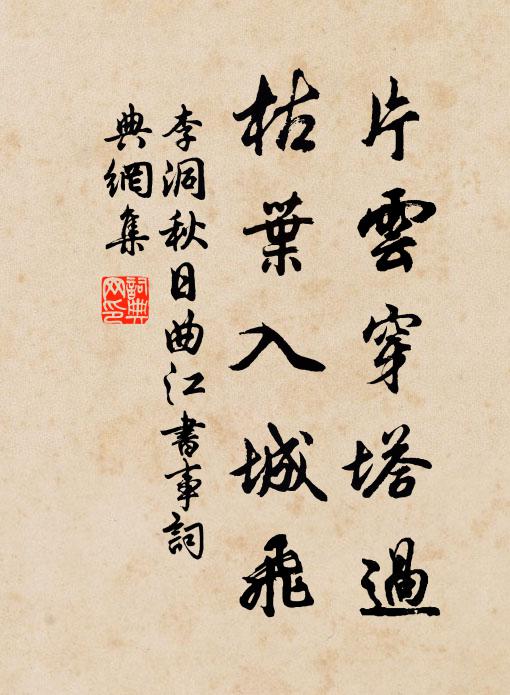 片雲穿塔過
枯葉入城飛
李洞秋日曲江書事詞
典網集
詞典網印